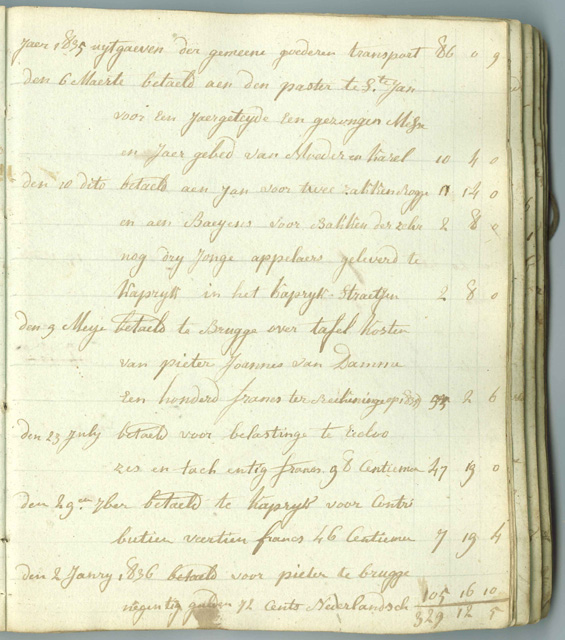 Jaer 1835 uytgaeven der gemeene goederen transport 86 0 9
den 6 Maerte betaeld aen den paster te Ste Jan
voor Een Jaergetyde Een gezongen Messe
en Jaer gebed van Moeder en Karel 10 4 0
den 10 dito betaeld aen Jan voor twee zakken rogge 11 14 0
en aen Baeyens voor Bakken der 2 hr 2 8 0
nog dry Jonge appelaers geleverd te
Kapryk in het Kapryk-Straetjen 2 8 0
den 9 Meije betaeld te Brugge over tafel Kosten
van pieter Joannes van Damme
Een honderd francs ter Reekeninge op 1835 55 2 6
den 23 July betaeld voor belastinge te Eecloo
zes en tach entig francs 98 Centiemen 47 19 0
den 29en 7ber betaeld te Kapryk voor Contri
butien veertien francs 46 Centiemen 7 19 4
den 2 Janry 1836 betaeld voor pieter te brugge
negentig gulden 72 Cents Nederlandsch 105 16 10
329 12 5